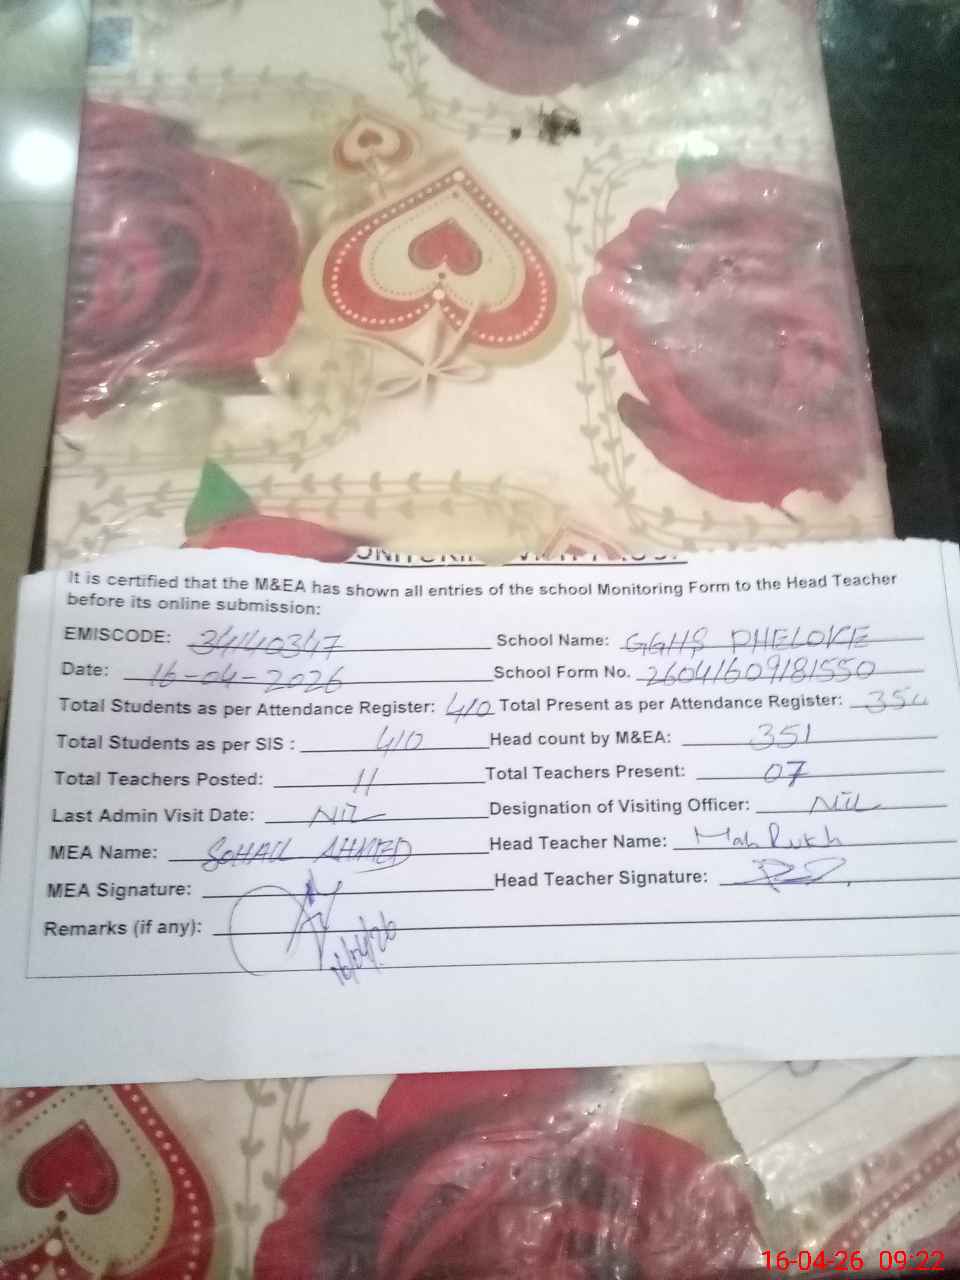 It is certified that the M&EA has shown all entries of the school Monitoring Form to the Head Teacher
before its online submission:
EMISCODE: 34140347 School Name: GGHS DHELOKE
Date: 16-04-2026 School Form No. 26041609181550
Total Students as per Attendance Register: 410 Total Present as per Attendance Register:
Total Students as per SIS : 410 Head count by M&EA: 351
Total Teachers Posted: 11 Total Teachers Present: 07
Last Admin Visit Date: Nil Designation of Visiting Officer: Nil
MEA Name: SOHAIL AHMED Head Teacher Name: Mah Rukh
MEA Signature: Head Teacher Signature:
Remarks (if any):
16/04/26
16-04-26 09:22